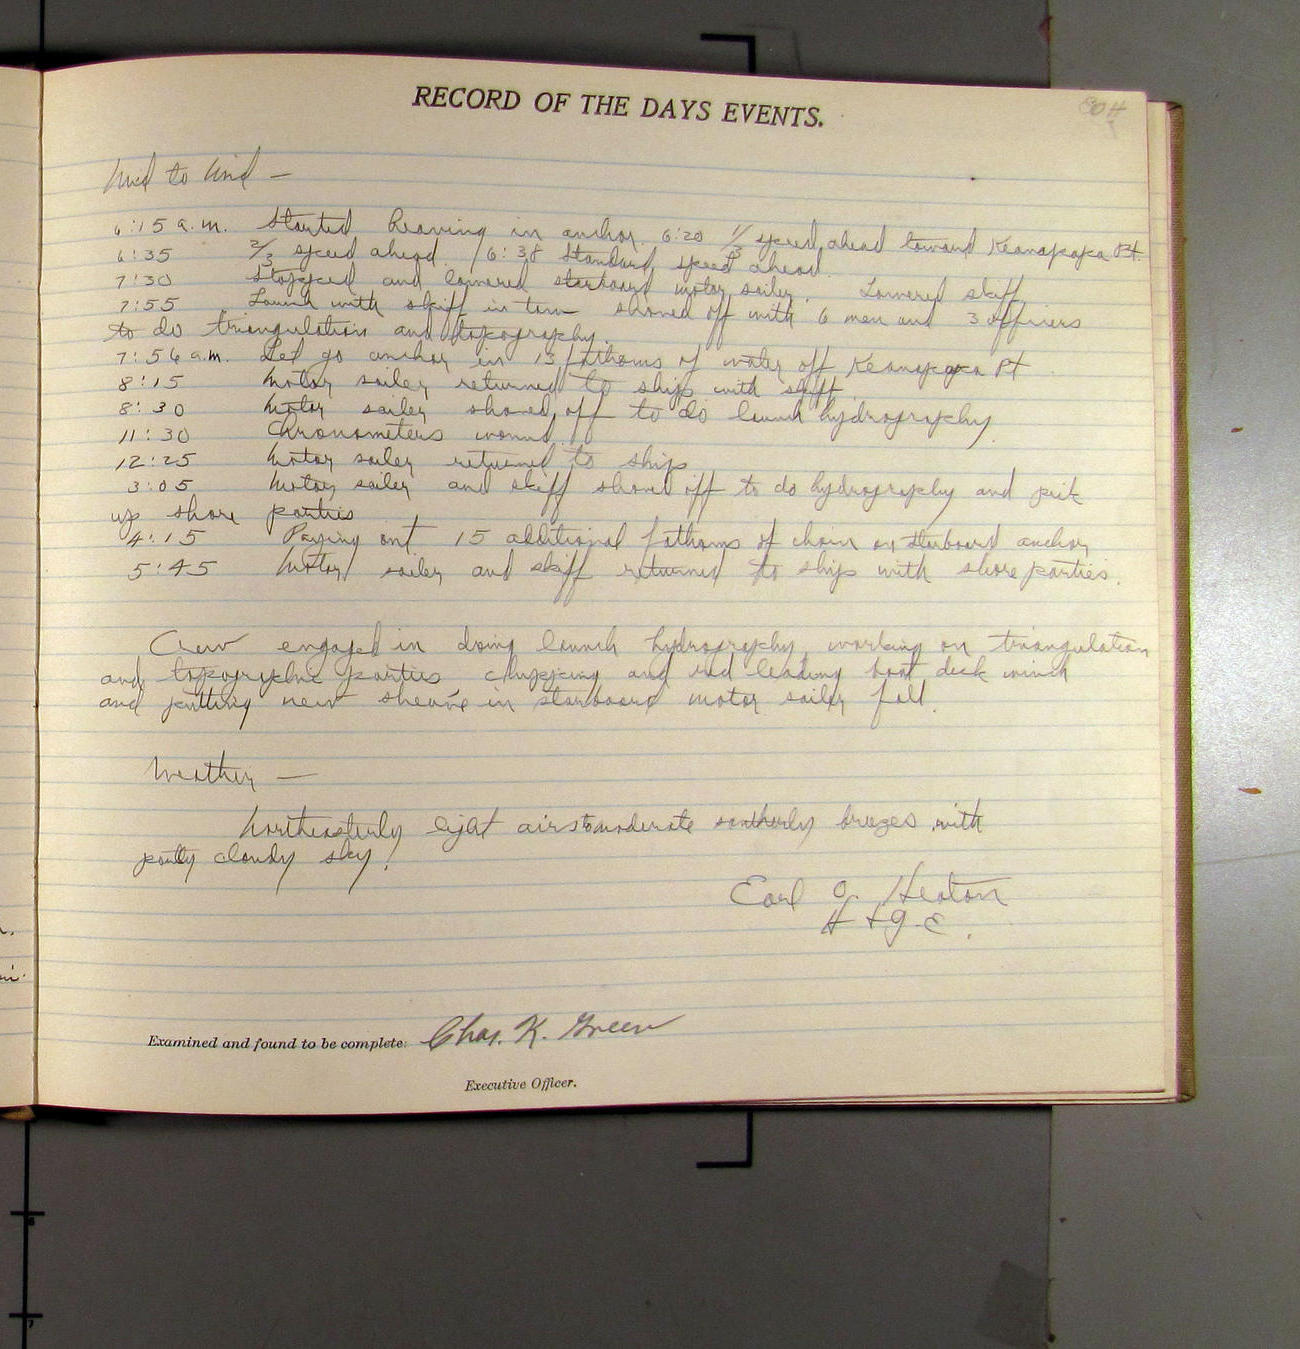 RECORD OF THE DAYS EVENTS.
Mid to Mid —
6:15 a.m. Started heaving in anchor. 6:20 1/3 speed ahead toward Keanapapa Pt.
6:35 2/3 speed ahead. 6:38 Standard speed ahead.
7:30 Stopped and lowered starboard motor sailer. Lowered skiff
7:55 Launch with skiff in tow shoved off with 6 men and 3 officers
to do triangulation and topography.
7:56 a.m. Let go anchor in 13 fathoms of water off Keanapapa Pt
8:15 Motor sailer returned to ship with skiff.
8:30 Motor sailer shoved off to do launch hydrography
11:30 Chronometers wound
12:25 Motor sailer returned to ship
3:05 Motor sailer and skiff shoved off to do hydrography and pick
up shore parties
4:15 Paying out 15 additional fathoms of chain on starboard anchor
5:45 Motor sailer and skiff returned to ship with shore parties.
Crew engaged in doing launch hydrography, working on triangulation
and topographic parties chipping and red leading boat deck winch
and putting new sheave in starboard motor sailer fall.
Weather —
Northeasterly light airs to moderate southerly breezes with
partly cloudy sky.
Earl O. Heaton
H + G. E.
Examined and found to be complete: Chas. K. Green
Executive Officer.